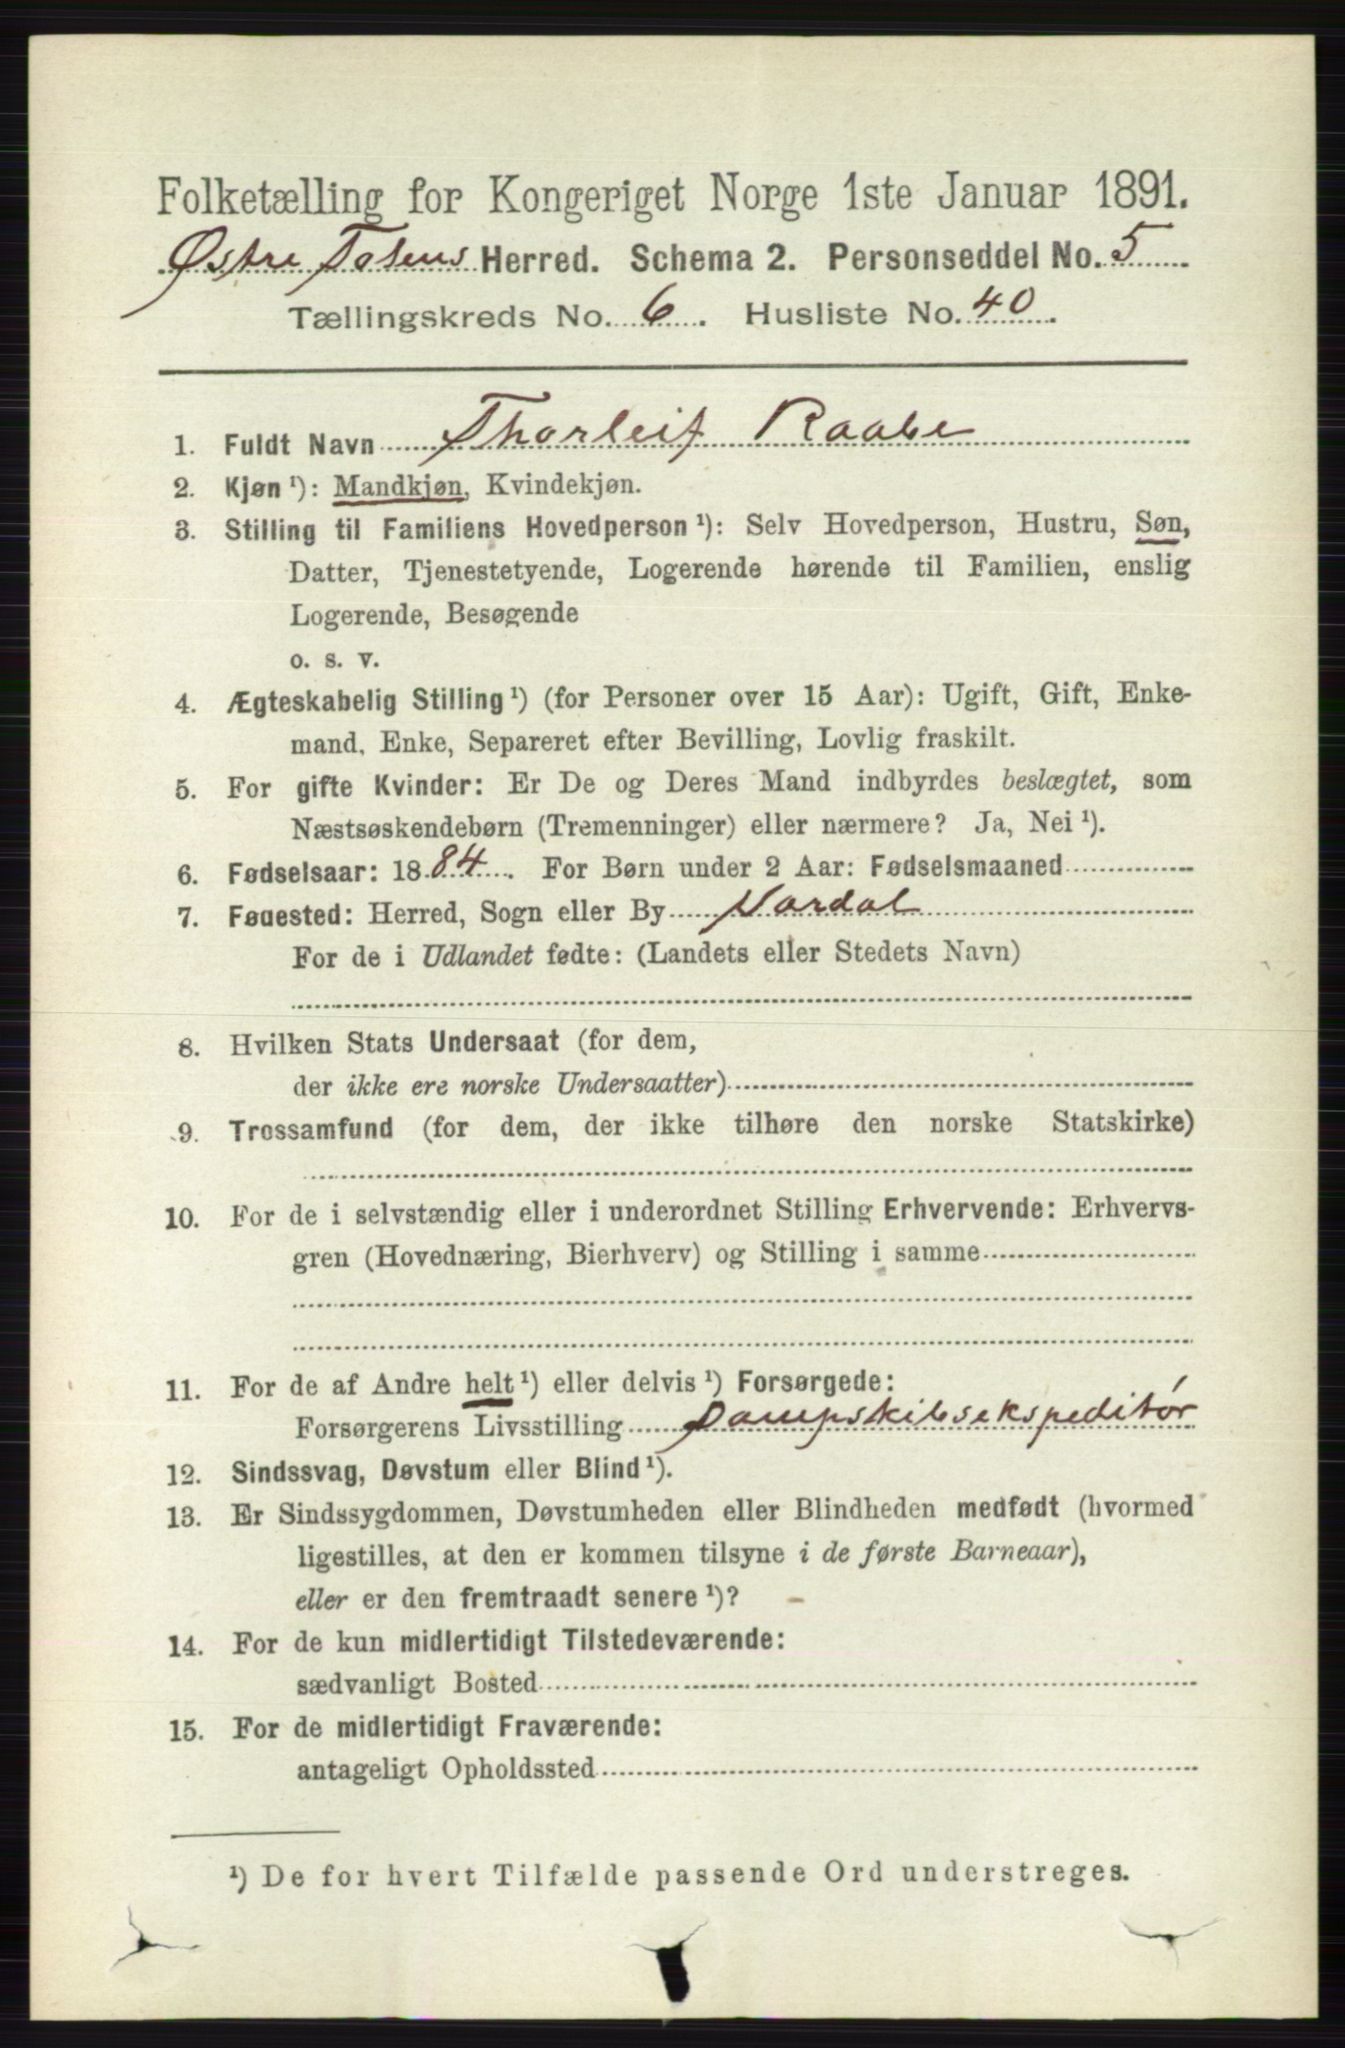 Folketælling for Kongeriget Norge 1ste Januar 1891.
Østre Totens Herred. Schema 2. Personseddel No. 5
Tællingskreds No. 6. Husliste No. 40.
1. Fuldt Navn Thorleif Raabe
2. Kjøn ¹): Mandkjøn, Kvindekjøn.
3. Stilling til Familiens Hovedperson ¹): Selv Hovedperson, Hustru, Søn,
Datter, Tjenestetyende, Logerende hørende til Familien, enslig
Logerende, Besøgende
o. s. v.
4. Ægteskabelig Stilling ¹) (for Personer over 15 Aar): Ugift, Gift, Enke-
mand, Enke, Separeret efter Bevilling, Lovlig fraskilt.
5. For gifte Kvinder: Er De og Deres Mand indbyrdes beslægtet, som
Næstsøskendebørn (Tremenninger) eller nærmere? Ja, Nei ¹).
6. Fødselsaar: 1884. For Børn under 2 Aar: Fødselsmaaned
7. Føuested: Herred, Sogn eller By Vardal
For de i Udlandet fødte: (Landets eller Stedets Navn)
8. Hvilken Stats Undersaat (for dem,
der ikke ere norske Undersaatter)
9. Trossamfund (for dem, der ikke tilhøre den norske Statskirke)
10. For de i selvstændig eller i underordnet Stilling Erhvervende: Erhvervs-
gren (Hovednæring, Bierhverv) og Stilling i samme
11. For de af Andre helt ¹) eller delvis ¹) Forsørgede:
Forsørgerens Livsstilling Dampskibsekspeditør
12. Sindssvag, Døvstum eller Blind ¹).
13. Er Sindssygdommen, Døvstumheden eller Blindheden medfødt (hvormed
ligestilles, at den er kommen tilsyne i de første Barneaar),
eller er den fremtraadt senere ¹)?
14. For de kun midlertidigt Tilstedeværende:
sædvanligt Bosted
15. For de midlertidigt Fraværende:
antageligt Opholdssted
¹) De for hvert Tilfælde passende Ord understreges.